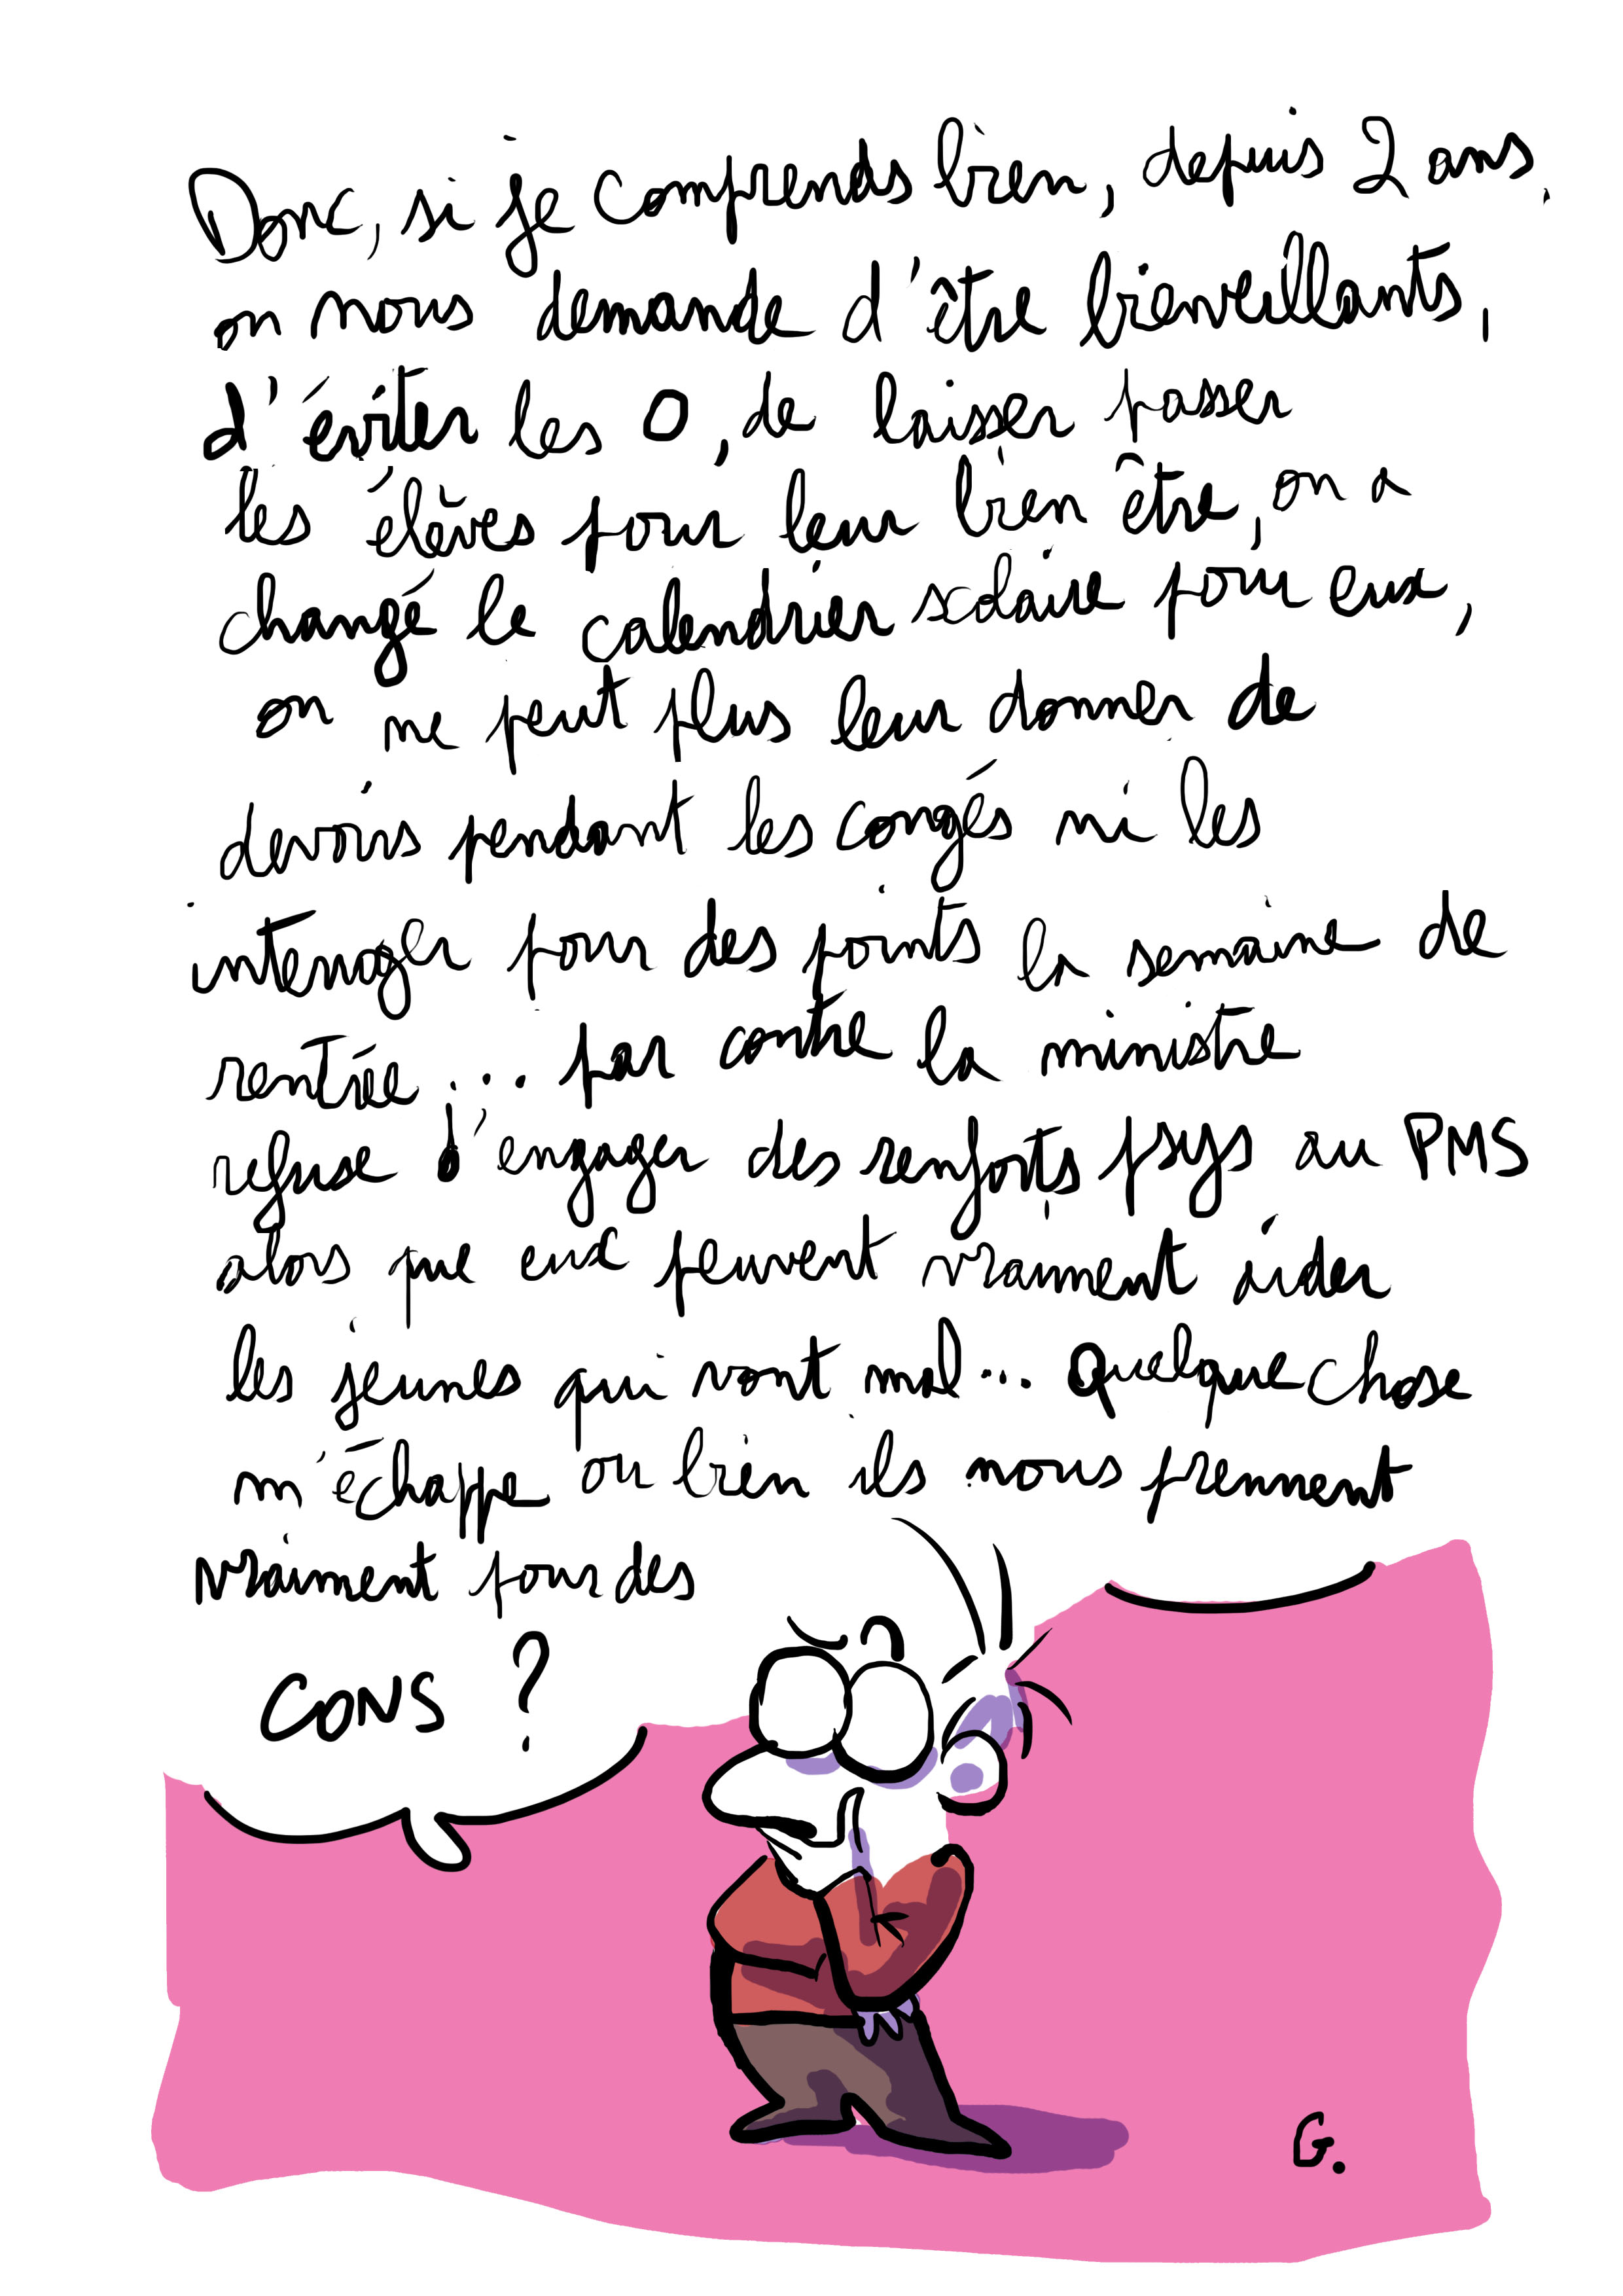 Donc, si je comprends bien, depuis 2 ans,
on nous demande d'être bienveillants,
d'éviter les 0, de laisser passer
les élèves pour leur bien être, on a
changé le calendrier scolaire pour eux,
on ne peut plus leur donner de
devoirs pendant les congés ni les
interroger pour des points la semaine de
rentrée... par contre la ministre
refuse d'engager des renforts psys au PMS
alors que eux peuvent vraiment aider
les jeunes qui vont mal... Quelque chose
m'échappe ou bien ils nous prennent
vraiment pour des
CONS ?
G.